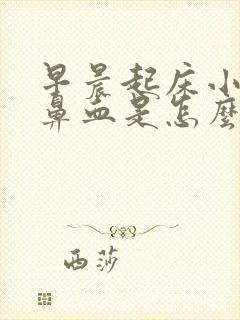 早晨起床小
鼻血是怎麼
西莎